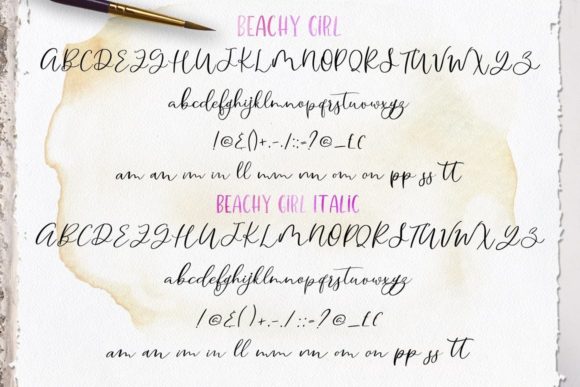 BEACHY GIRL
ABCDEFGHIJKLMNOPQRSTUVWXYZ
abcdefghijklmnopqrstuvwxyz
!@&()+.-./::-?@_[C
am an rm in ll mm nn om on pp ss tt
BEACHY GIRL ITALIC
ABCDEFGHIJKLMNOPQRSTUVWXYZ
abcdefghijklmnopqrstuvwxyz
!@&()+.-./::-?@_[C
am an rm in ll mm nn om on pp ss tt